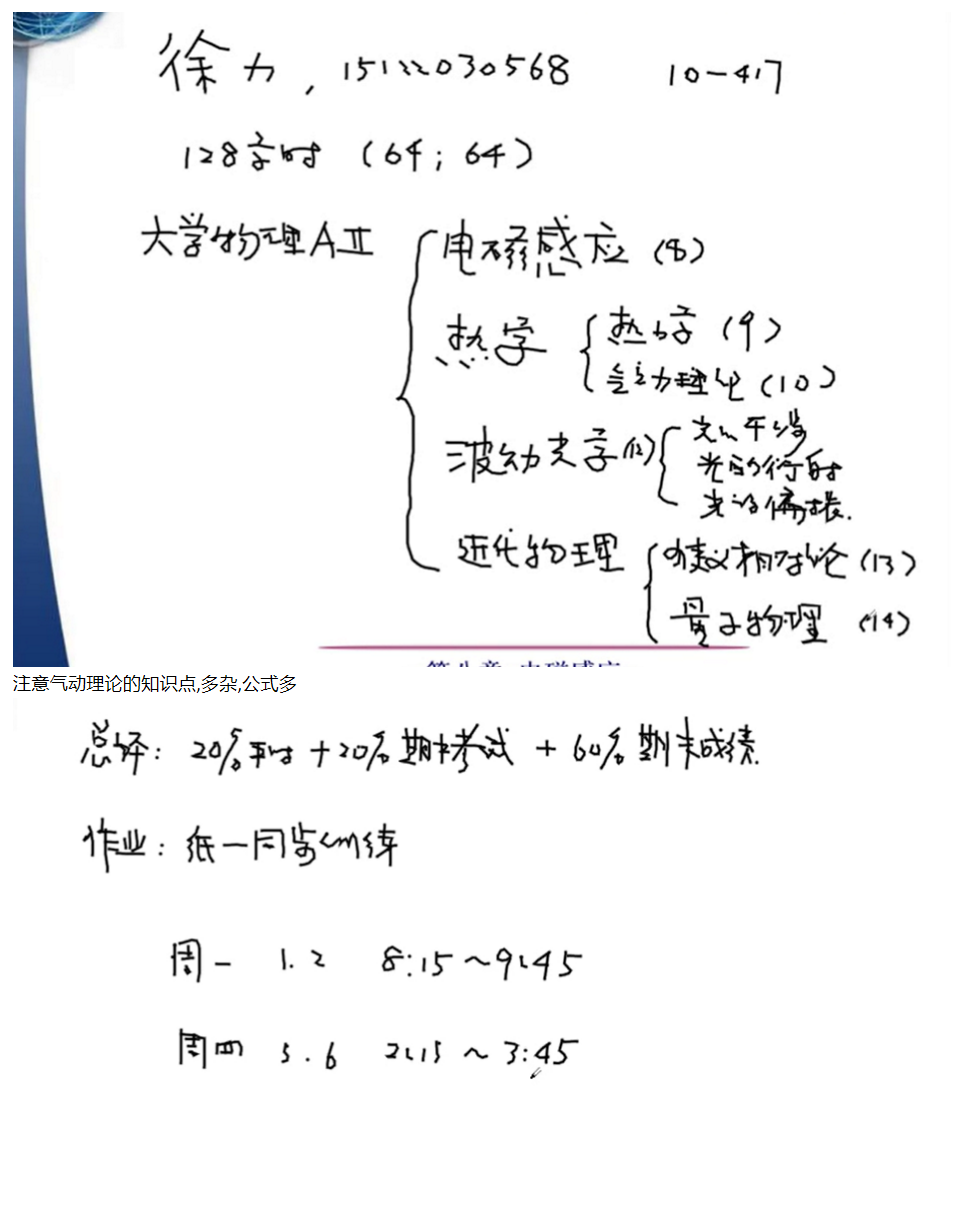 徐力, 15122030568 10-417
128学时 (64; 64)
大学物理AⅡ
电磁感应 (8)
热学
热力学 (9)
气动理论 (10)
波动光学 (12)
光的干涉
光的衍射
光的偏振.
近代物理
狭义相对论 (13)
量子物理 (14)
第八章 电磁感应
注意气动理论的知识点,多杂,公式多
总评: 20%平时 + 20%期末考试 + 60%期末成绩.
作业: 纸一同步训练
周一 1.2 8:15~9:45
周四 5.6 2:15~3:45